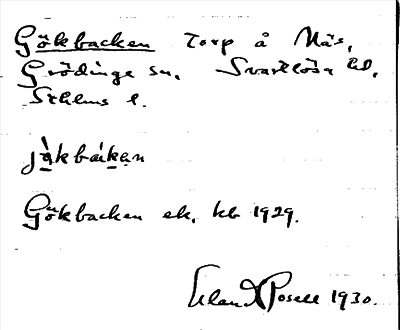 Gökbacken Torp å Näs,
Grödinge sn. Svartlösa hd.
Sthlms l.
jö̀kbákan
Gökbacken ek. kb 1929.
Erland Rosell 1930.